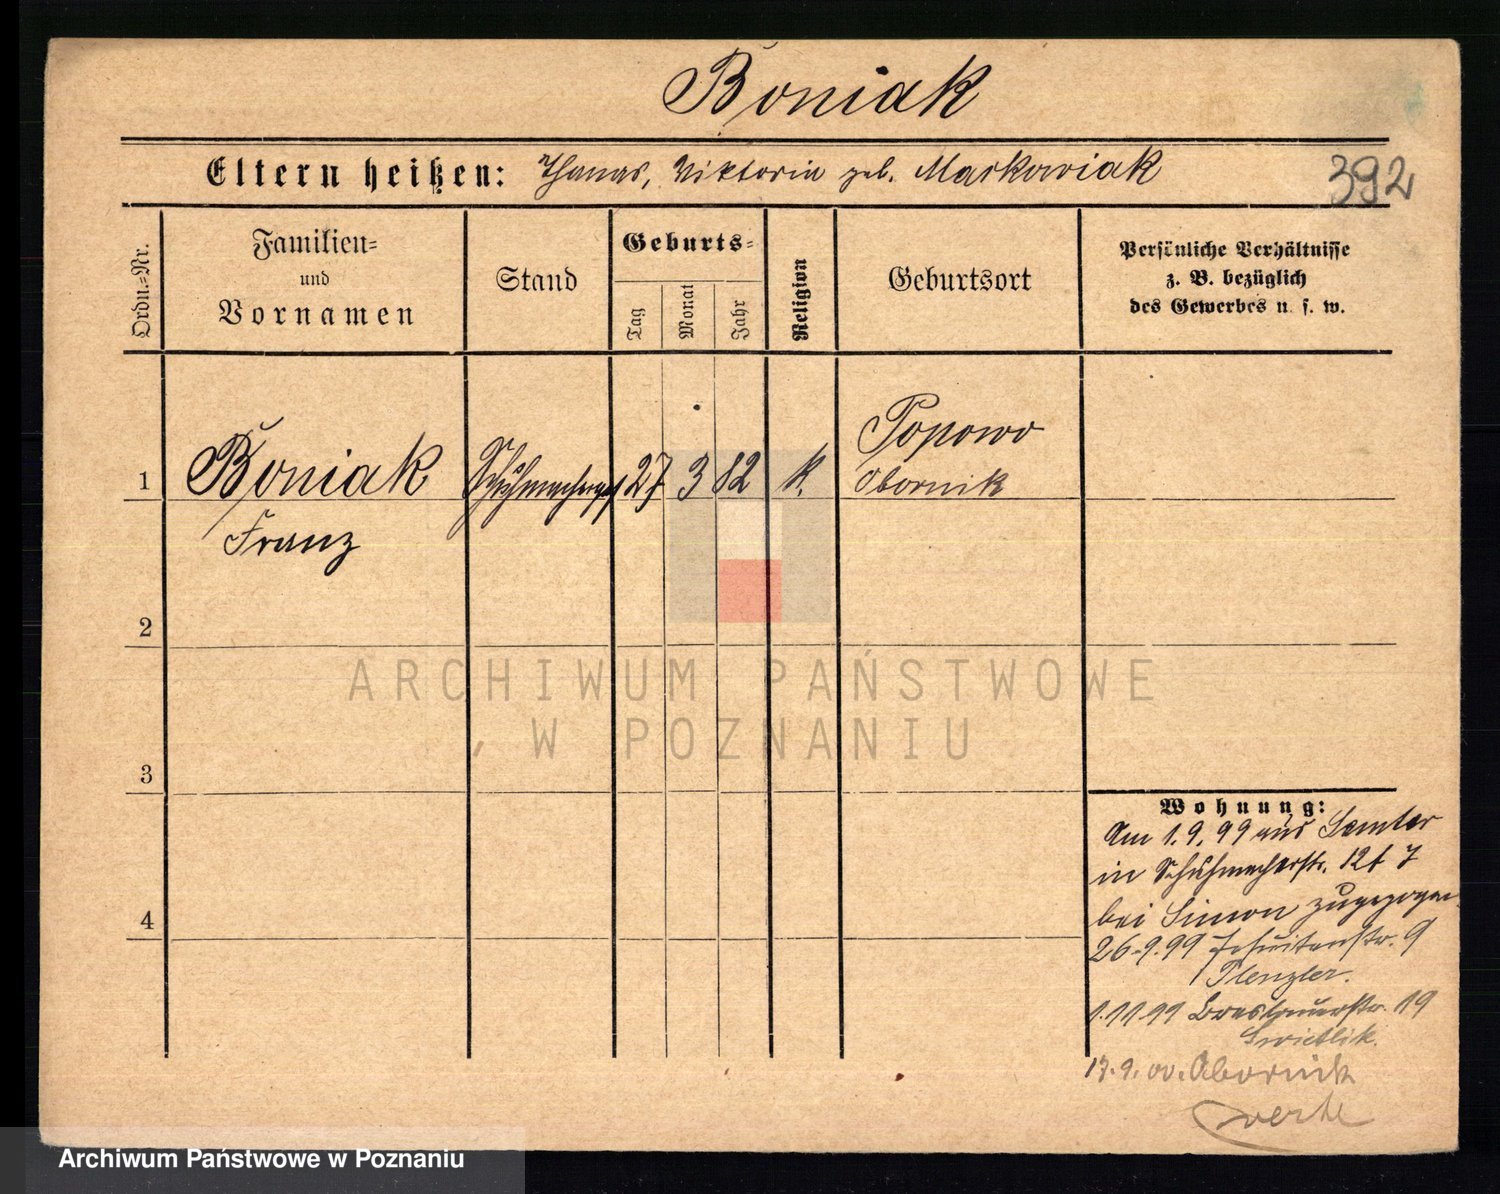 Boniak
Eltern heißen: Thomas, Viktoria geb. Markowiak
392
Ordn.-Nr.
Familien-
und
Vornamen
Stand
Geburts-
Tag
Monat
Jahr
Religion
Geburtsort
Persönliche Verhältnisse
z. B. bezüglich
des Gewerbes u. s. w.
1
Boniak
Franz
27
3
82
k.
Popowo
Obornik
2
3
4
Wohnung:
Am 1.9.99 aus Samter
in Schuhmacherstr. 12
bei Simon zugezogen
26.9.99 Jesuitenstr. 9
Plenzler.
1.11.99 Breslauerstr. 19
Swietlik.
Obornik
ARCHIWUM PAŃSTWOWE
W POZNANIU
Archiwum Państwowe w Poznaniu